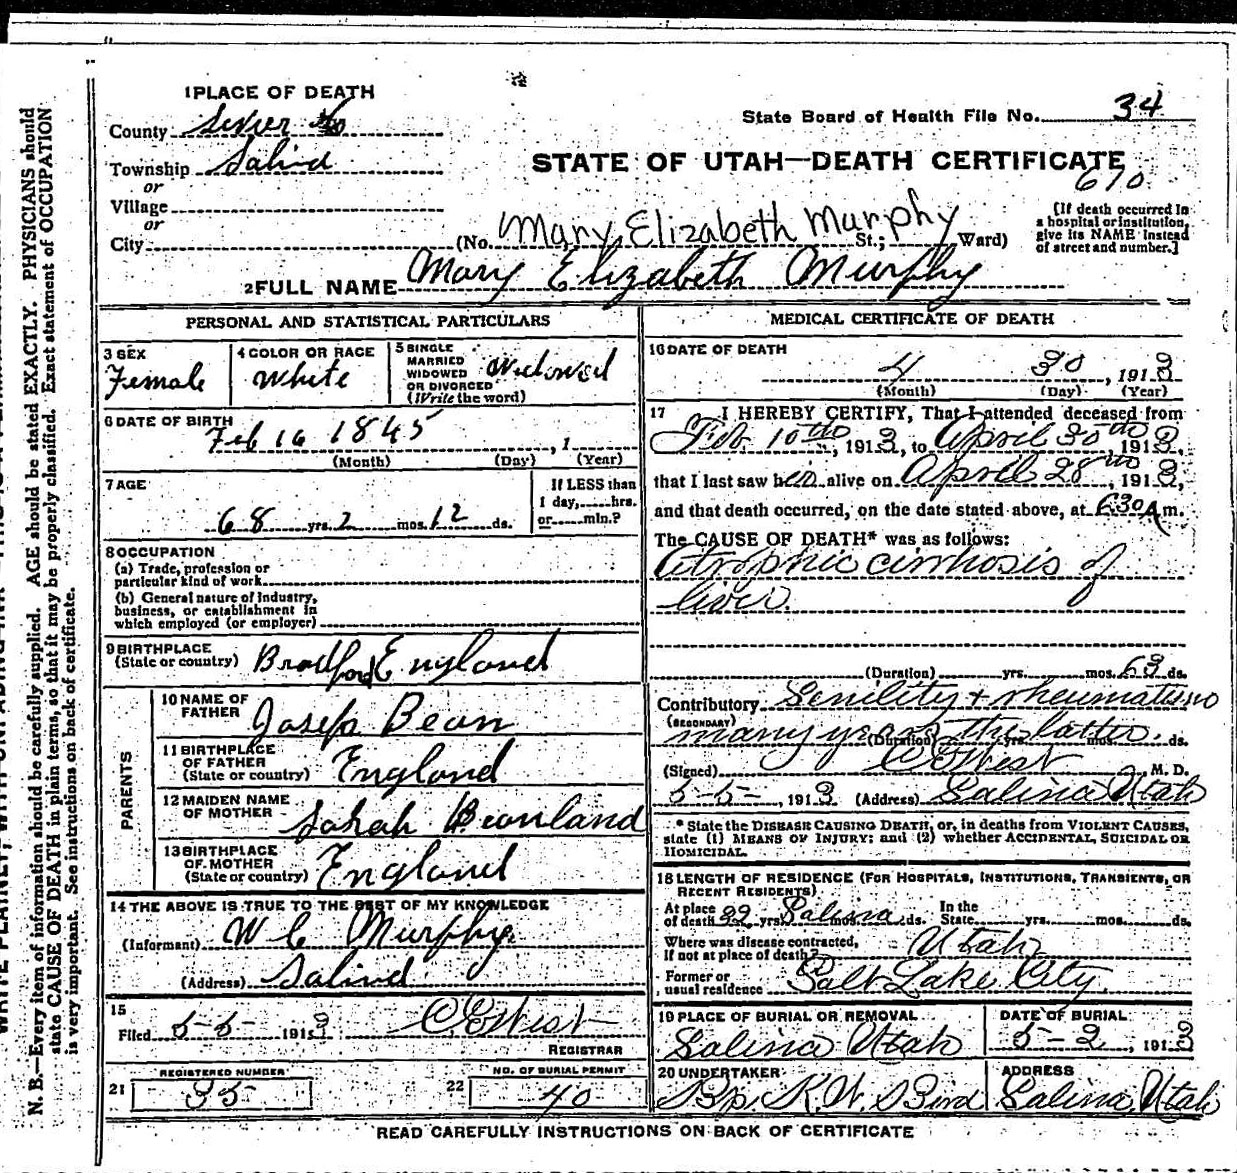 1 PLACE OF DEATH
County Sevier Co
Township Salina
or
Village
or
City
State Board of Health File No. 34
STATE OF UTAH—DEATH CERTIFICATE
670
(No. Mary Elizabeth Murphy St.; Ward)
[If death occurred in
a hospital or institution,
give its NAME instead
of street and number.]
2 FULL NAME Mary Elizabeth Murphy
PERSONAL AND STATISTICAL PARTICULARS
3 SEX
Female
4 COLOR OR RACE
White
5 SINGLE
MARRIED
WIDOWED
OR DIVORCED
(Write the word)
Widowed
6 DATE OF BIRTH
Feb 16 1845, 1
(Month) (Day) (Year)
7 AGE
68 yrs. 2 mos. 12 ds.
If LESS than
1 day, hrs.
or min.?
8 OCCUPATION
(a) Trade, profession or
particular kind of work
(b) General nature of Industry,
business, or establishment in
which employed (or employer)
9 BIRTHPLACE
(State or country) Bradford England
PARENTS
10 NAME OF
FATHER Josep Bean
11 BIRTHPLACE
OF FATHER
(State or country) England
12 MAIDEN NAME
OF MOTHER Sahah Beanland
13 BIRTHPLACE
OF MOTHER
(State or country) England
14 THE ABOVE IS TRUE TO THE BEST OF MY KNOWLEDGE
(Informant) W C Murphy
(Address) Salina
15
Filed 5-5-, 1913 C E West
REGISTRAR
21 REGISTERED NUMBER
35
22 NO. OF BURIAL PERMIT
40
MEDICAL CERTIFICATE OF DEATH
16 DATE OF DEATH
4 30, 1913
(Month) (Day) (Year)
17 I HEREBY CERTIFY, That I attended deceased from
Feb. 10th, 1913, to April 30th 1913,
that I last saw her alive on April 28th, 1913,
and that death occurred, on the date stated above, at 630 A m.
The CAUSE OF DEATH* was as follows:
Atrophic cirrhosis of
liver.
(Duration) yrs. mos. 63 ds.
Contributory Senility + rheumatism
(SECONDARY)
many years the latter.
(Duration) yrs. mos. ds.
(Signed) C E West M. D.
5-5-, 1913 (Address) Salina Utah
* State the DISEASE CAUSING DEATH, or, in deaths from VIOLENT CAUSES,
state (1) MEANS OF INJURY; and (2) whether ACCIDENTAL, SUICIDAL OR
HOMICIDAL.
18 LENGTH OF RESIDENCE (FOR HOSPITALS, INSTITUTIONS, TRANSIENTS, OR
RECENT RESIDENTS)
At place
of death 22 yrs. Salina mos. ds. In the
State yrs. mos. ds.
Where was disease contracted,
If not at place of death? Utah
Former or
usual residence Salt Lake City
19 PLACE OF BURIAL OR REMOVAL
Salina Utah
DATE OF BURIAL
5-2, 1913
20 UNDERTAKER
Bp. K. W. Bird
ADDRESS
Salina, Utah
READ CAREFULLY INSTRUCTIONS ON BACK OF CERTIFICATE
N. B.—Every item of information should be carefully supplied. AGE should be stated EXACTLY. PHYSICIANS should
state CAUSE OF DEATH in plain terms, so that it may be properly classified. Exact statement of OCCUPATION
is very important. See instructions on back of certificate.